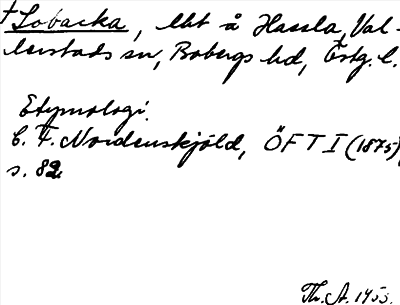 †Lobacka, lht å Hassla, Val-
lerstads sn, Bobergs hd, Östg. l.
Etymologi.
C. F. Nordenskjöld, ÖFT I (1875),
s. 82
Th. A. 1953.